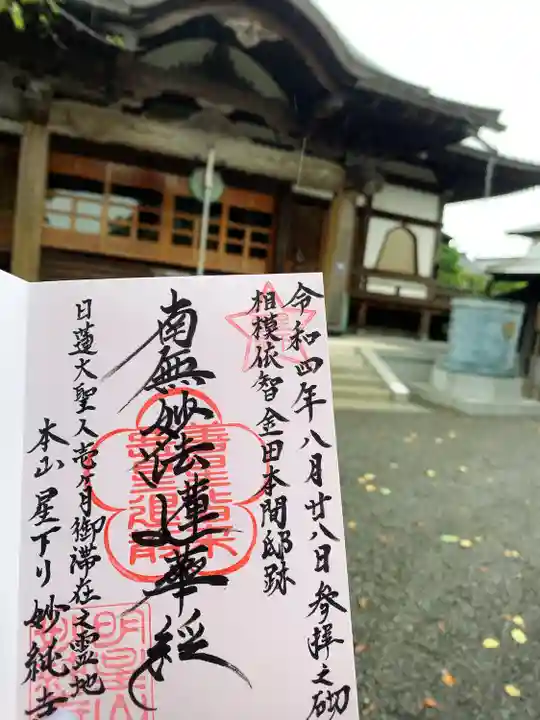 令和四年八月廿八日参拝之砌
相模依智金田本間邸跡
南無妙法蓮華経
日蓮大聖人壱ヶ月御滞在之霊地
本山星下り妙純寺